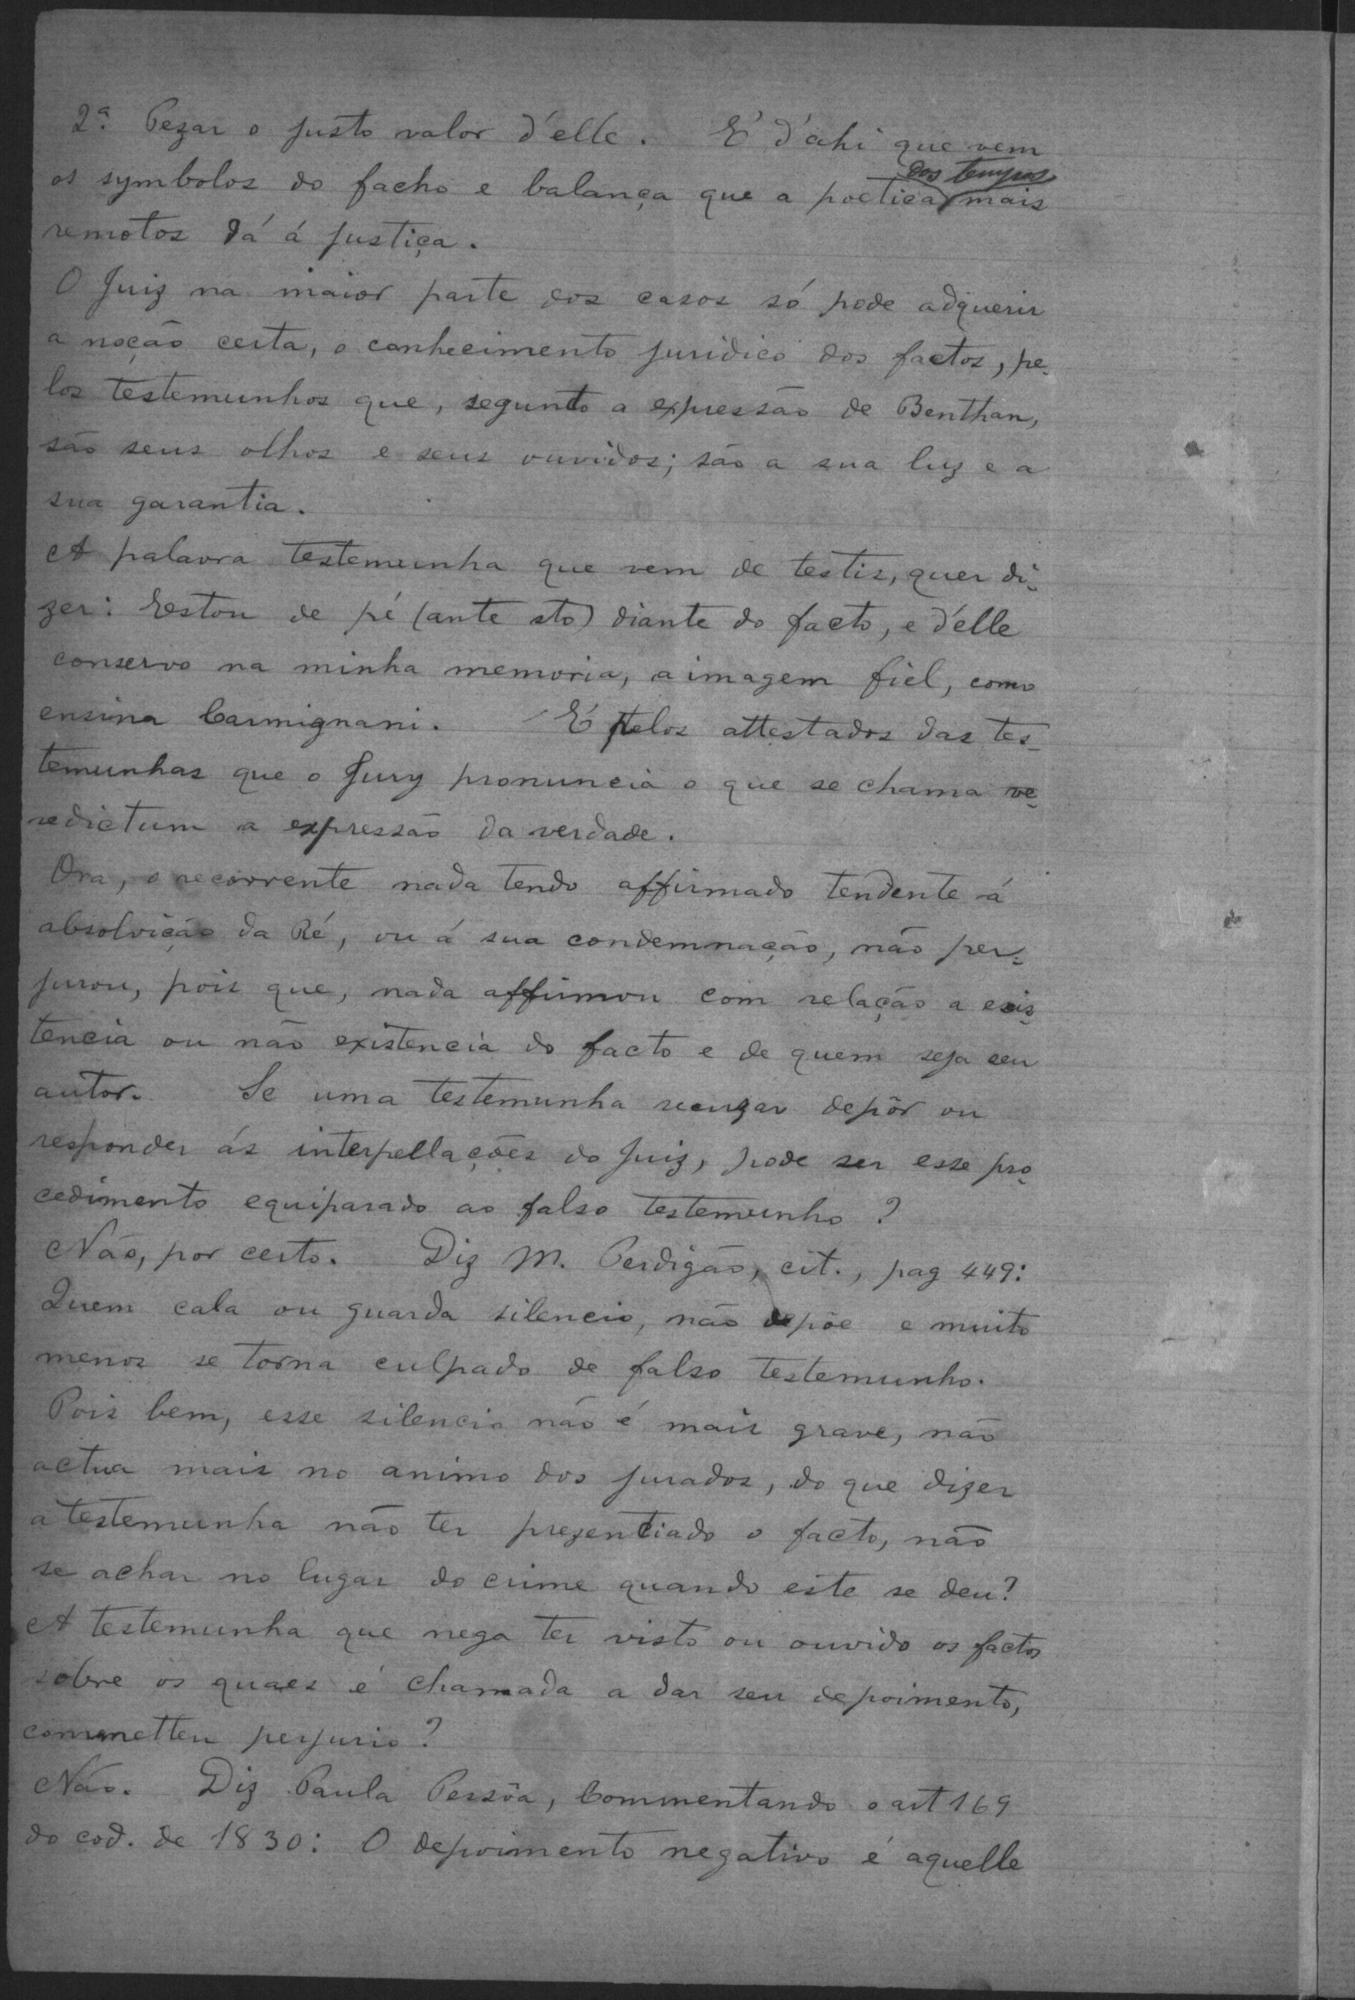 2ª. Pezar o justo valor d'elle. E' d'ahi que vem
os symbolos do facho e balança que a poetica dos tempos mais
remotos dá á justiça.
O Juiz na maior parte dos casos só pode adquerir
a noção certa, o conhecimento juridico dos factos, pe-
los testemunhos que, segundo a expressão de Benthan,
são seus olhos e seus ouvidos; são a sua luz e a
sua garantia.
A palavra testemunha que vem de testis, quer di-
zer: Estou de pé (ante sto) diante do facto, e d'elle
conservo na minha memoria, a imagem fiel, como
ensina Carmignani. E' pelos attestados das tes-
temunhas que o Jury pronuncia o que se chama ve-
redictum a expressão da verdade.
Ora, o recorrente nada tendo affirmado tendente á
absolvição da Ré, ou á sua condemnação, não per-
jurou, pois que, nada affirmou com relação a exis-
tencia ou não existencia do facto e de quem seja seu
autor. Se uma testemunha recuzar depôr ou
responder ás interpellações do Juiz, pode ser esse pro-
cedimento equiparado ao falso testemunho?
Não, por certo. Diz M. Perdigão, cit., pag 449:
Quem cala ou guarda silencio, não depõe e muito
menos se torna culpado de falso testemunho.
Pois bem, esse silencio não é mais grave, não
actua mais no animo dos jurados, do que dizer
a testemunha não ter prezenciado o facto, não
se achar no lugar do crime quando este se deu?
A testemunha que nega ter visto ou ouvido os factos
sobre os quaes é chamada a dar seu depoimento,
commetteu perjurio?
Não. Diz Paula Pessôa, Commentando o art 169
do cod. de 1830: O depoimento negativo é aquelle